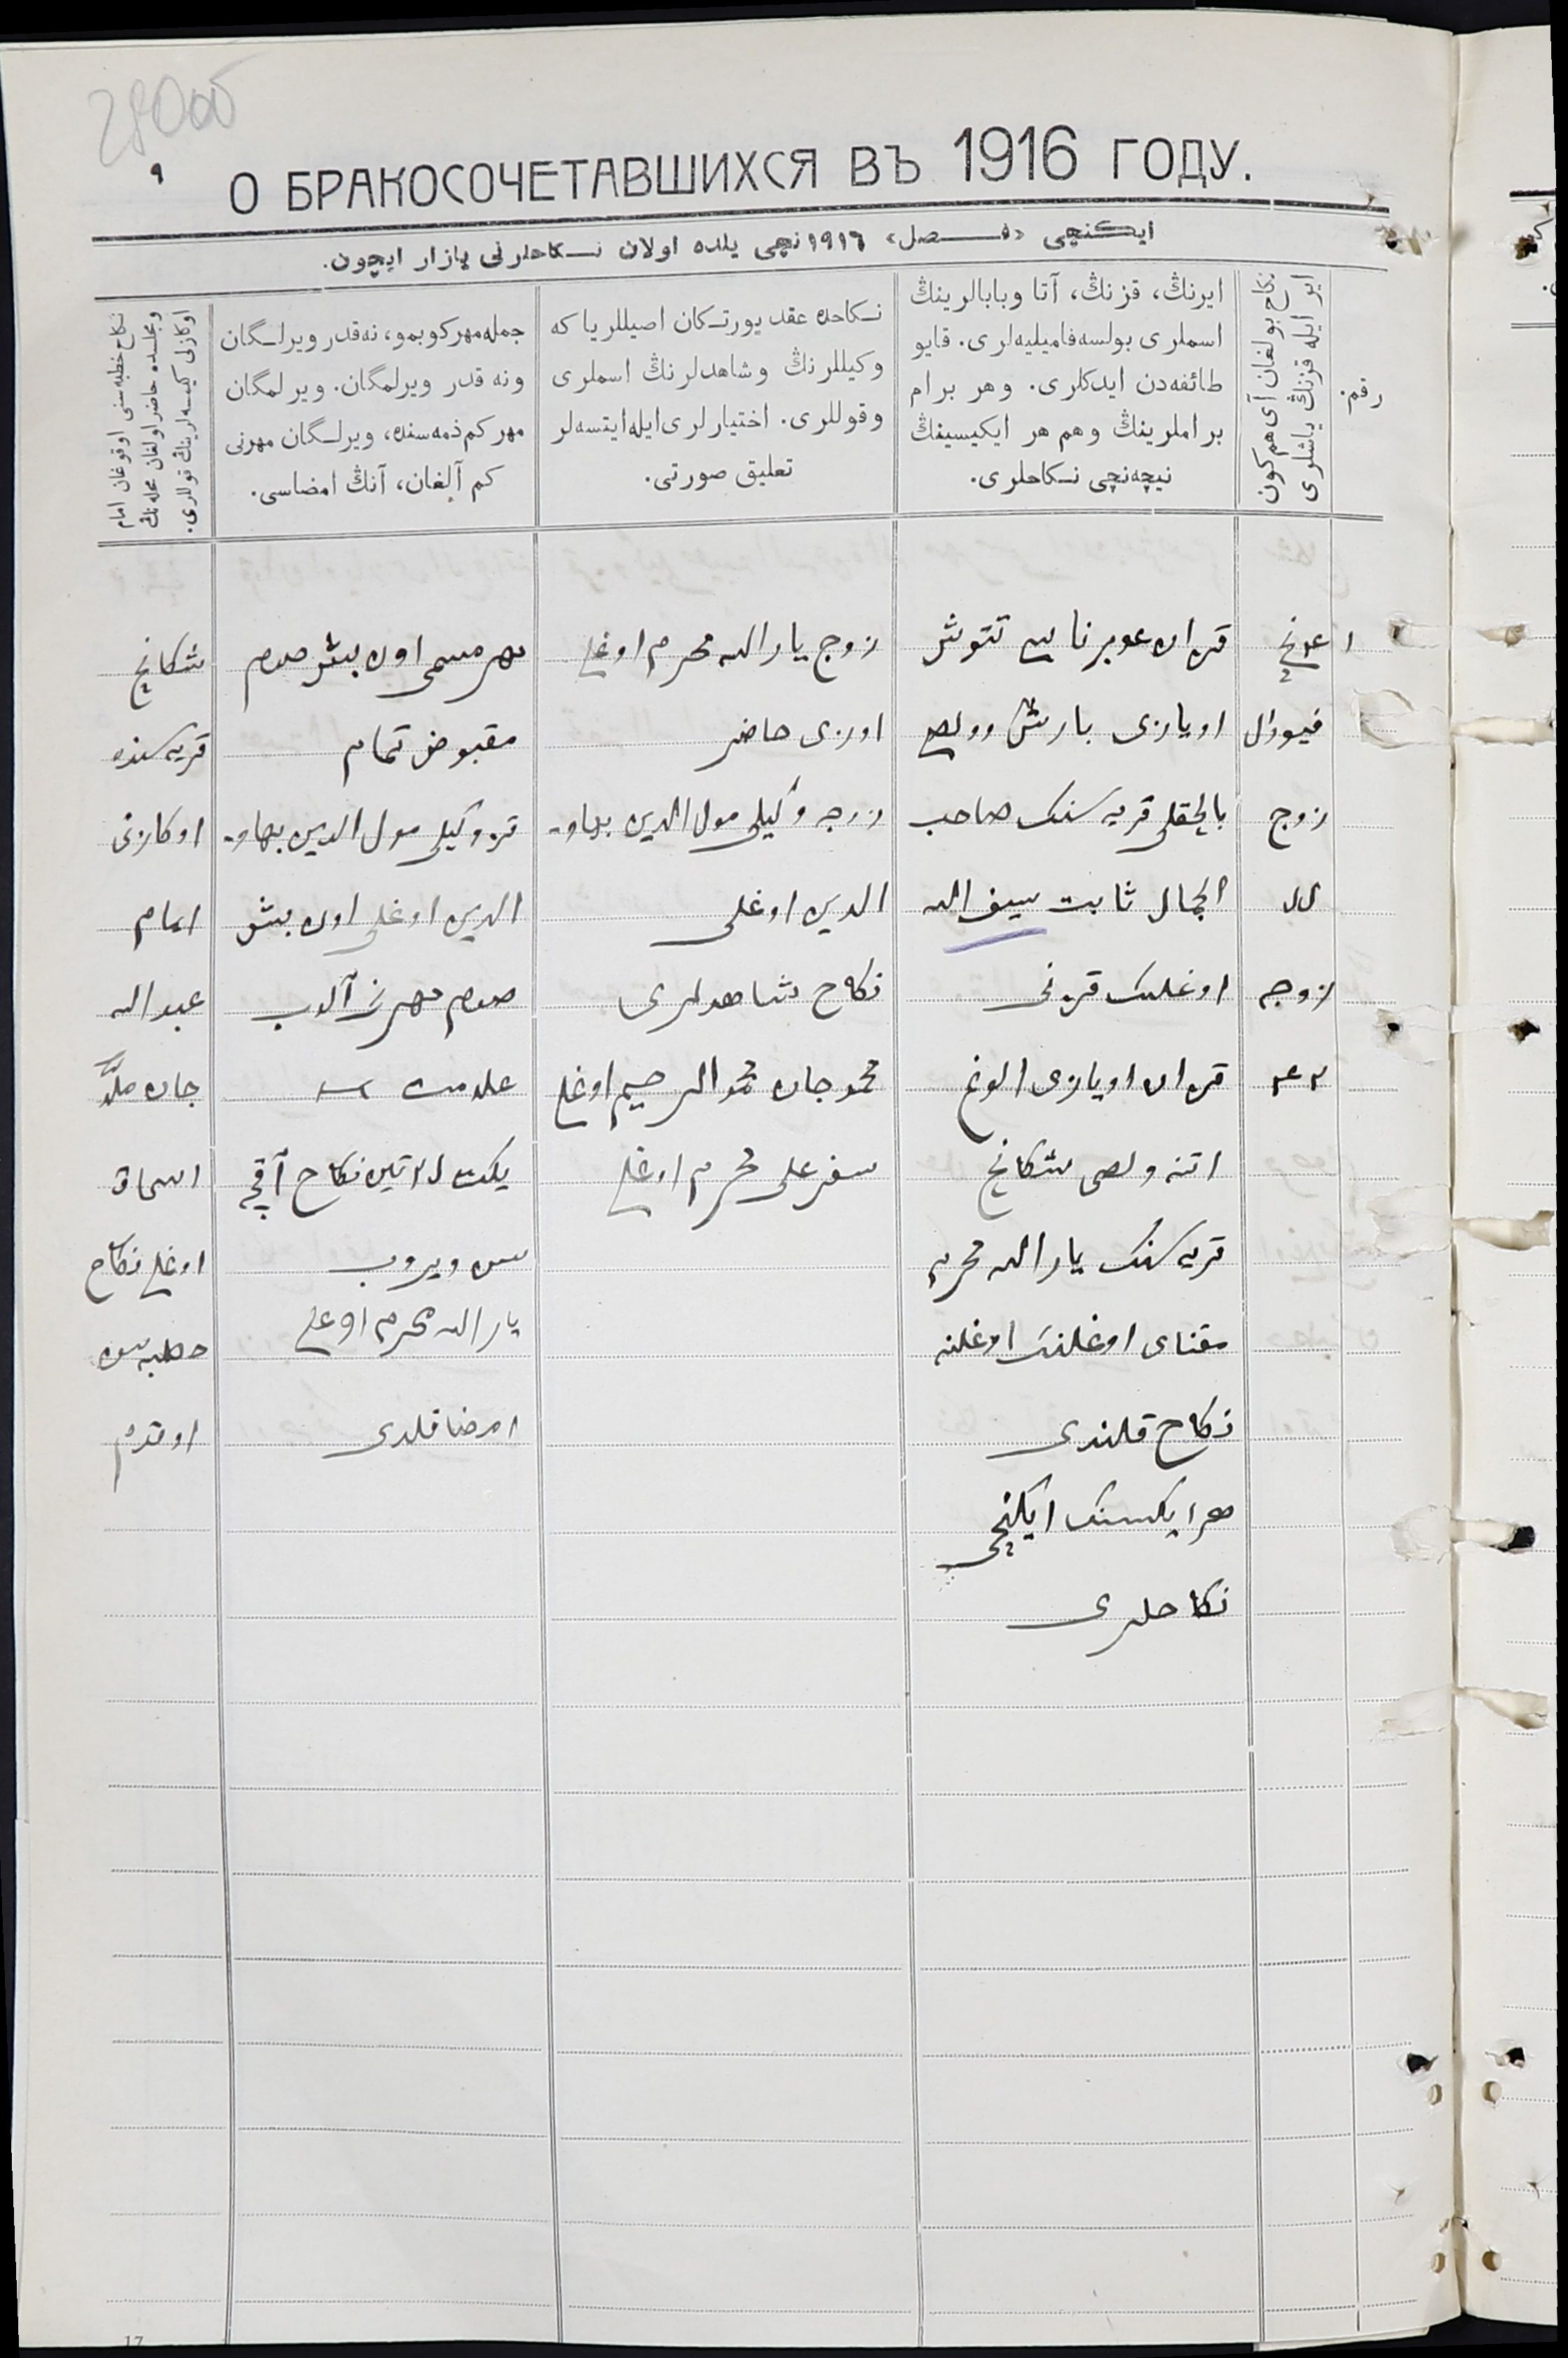 28000
٩
О БРАКОСОЧЕТАВШИХСЯ ВЪ 1916 ГОДУ.
ایكنچی «فصل» ١٩١٦ نچی یلده اولان نكاحلرنی یازار ایچون.
رقم.
نكاح بولغان آی هم كون
ایر ایله قزنڭ یاشلری
ایرنڭ، قزنڭ، آتا وبابالرینڭ
اسملری بولسه فامیلیه‌لری. قایو
طائفه‌دن ایدكلری. وهر برام
براملرینڭ وهم هر ایكیسینڭ
نیچه‌نچی نكاحلری.
نكاحده عقد یورتكان اصیللریا كه
وكیللرنڭ وشاهدلرنڭ اسملری
وقوللری. اختیارلری ایله ایتسه‌لر
تعلیق صورتی.
جمله مهر كوبمو، نه‌قدر ویرلگان
ونه قدر ویرلمگان. ویرلمگان
مهر كم ذمه‌سنده، ویرلگان مهرنی
كم آلغان، آنڭ امضاسی.
نكاح خطبه‌سنی اوقوغان امام
ومجلسده حاضر اولغان محله‌نڭ
اوكازلی كیسه‌لرینڭ قوللری.
١
فیورال
زوج
زوجه
قزان غوبرناسی تتوش
اویازی بارش وولص
بالچقلی قریه سنك صاحب
الجمال ثابت سیف الله
اوغلینك قزنی
قزان اویازی الوغ
اتنه ولصی شكانچ
قریه سنك یارالله محرم
مقنای اوغلنك اوغلنه
نكاح قلندی
هر ایكسنك ایكنچی
نكاحلری
زوج یارالله محرم اوغلی
اوزی حاضر
زوجه وكیلی مول الدین بهاو
الدین اوغلی
نكاح شاهدلری
سفرعلی محرم اوغلی
مهر مسمی اون بش صوم
مقبوض تمام
قز وكیلی مول الدین بهاو
الدین اوغلی اون بش
صوم مهرنی آلوب
نكاح آقچه
سن ویروب
یارالله محرم اوغلی
امضا قلدی
شكانچ
قریه سنده
اوكازنی
امام
عبدالله
جان ملا
اسحاق
اوغلی نكاح
خطبه سن
اوقدم
17